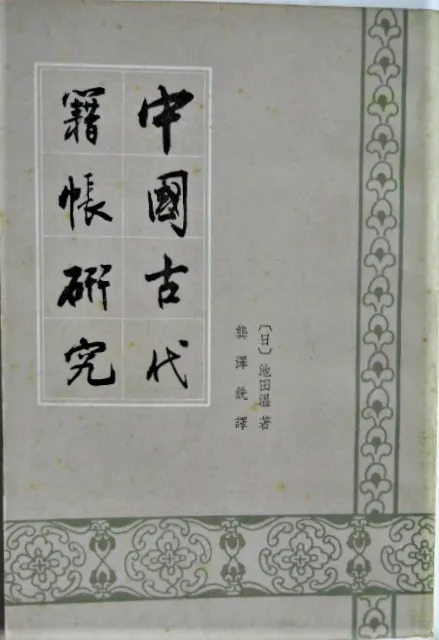 中國古代
籍帳研究
〔日〕池田溫著
龔澤銑譯